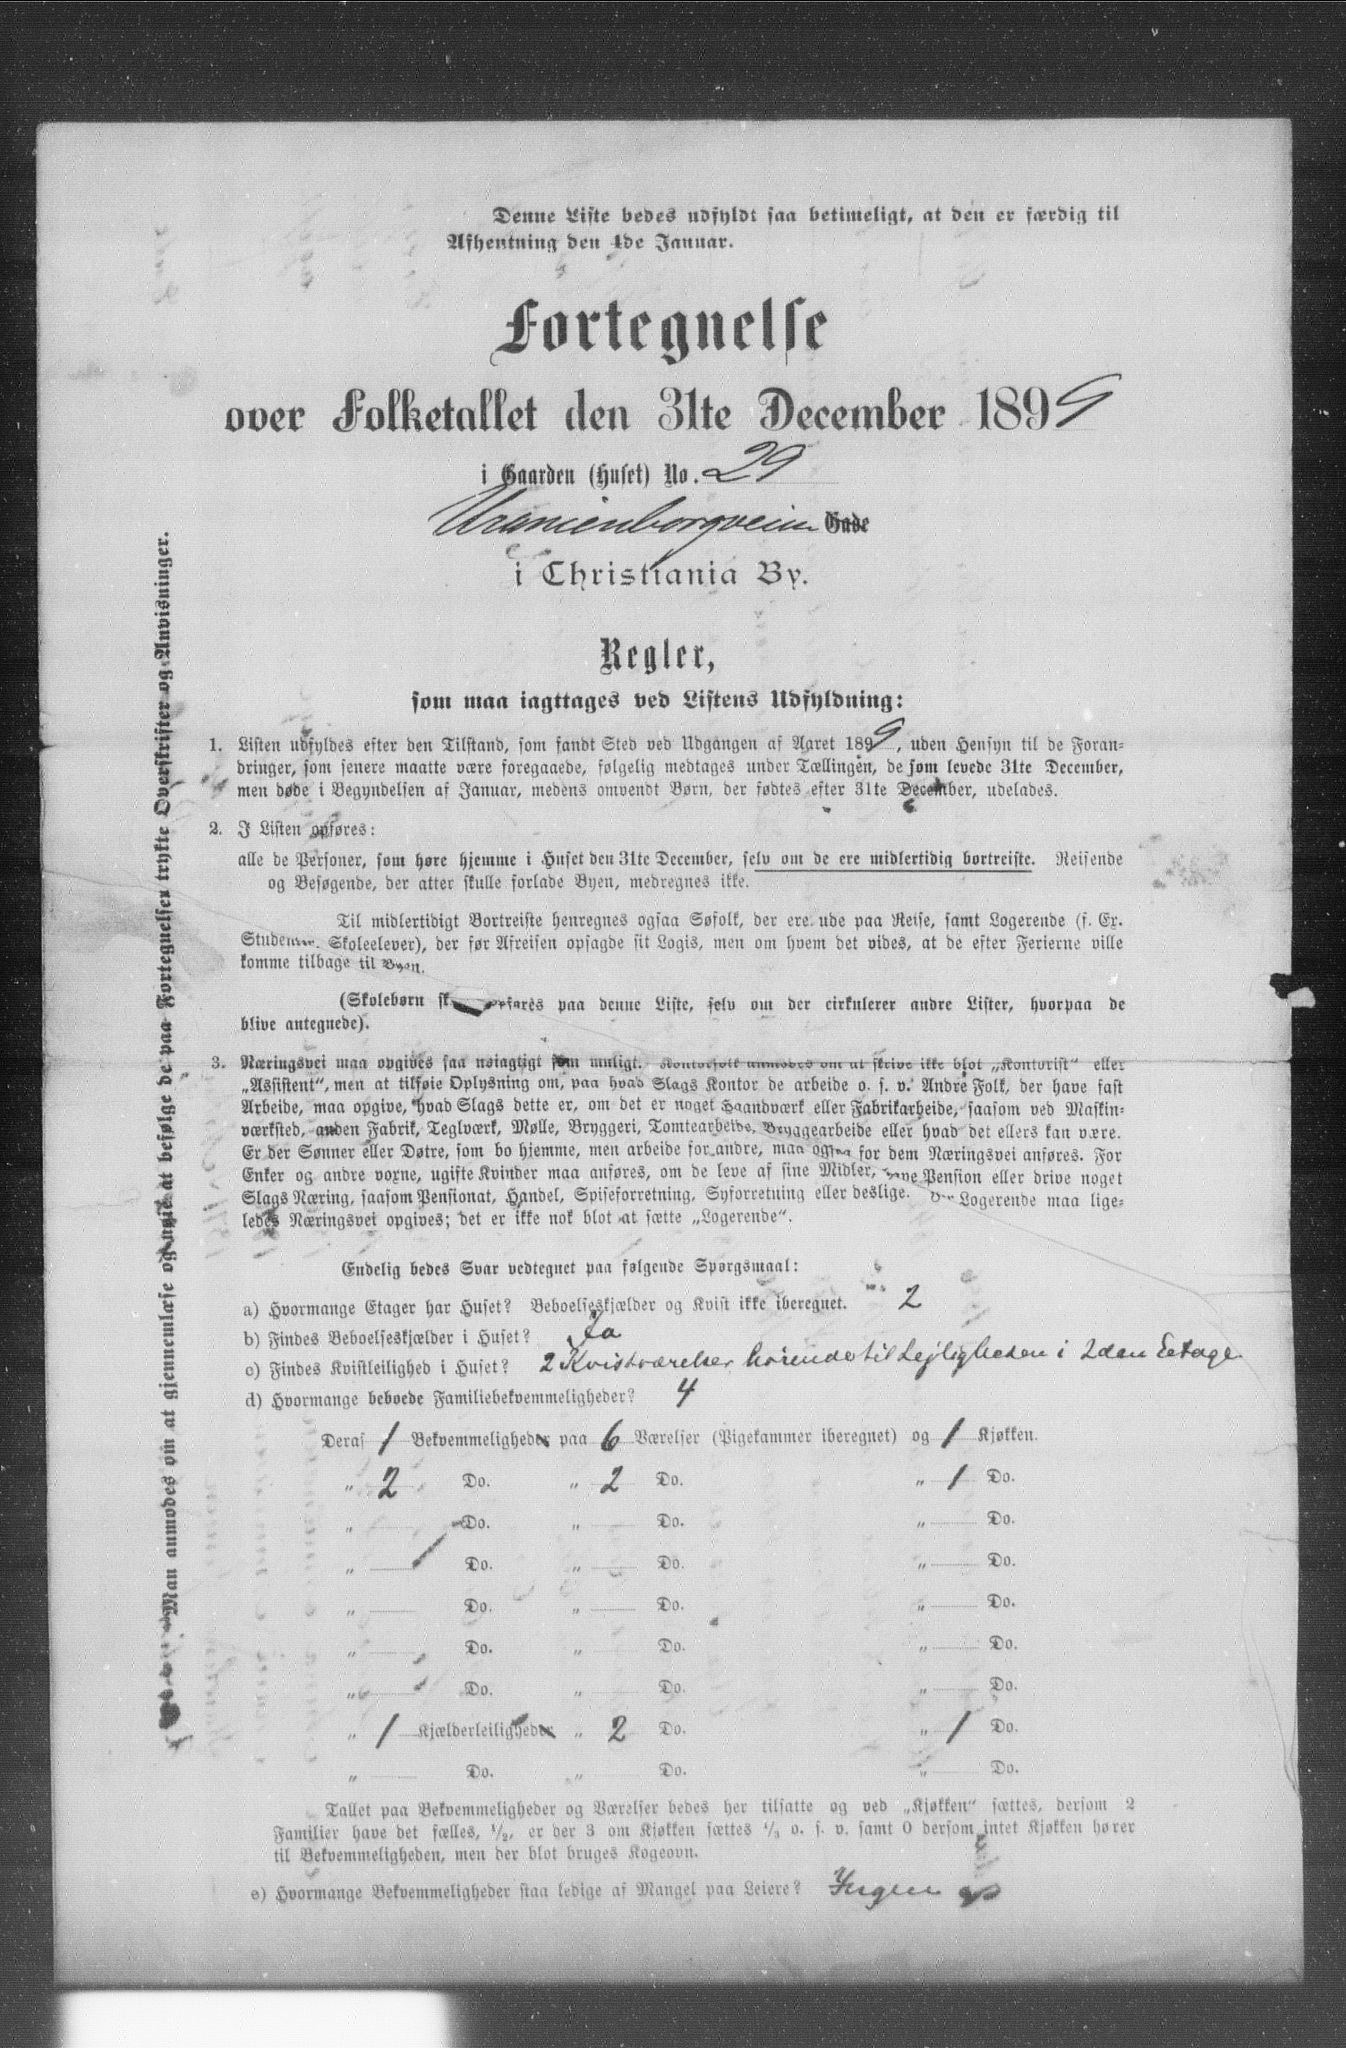 Denne Liste bedes udfyldt saa betimeligt, at den er færdig til
Afhentning den 4de Januar.
Fortegnelse
over Folketallet den 31te December 1899
i Gaarden (Huset) No. 29
Uranienborgveien Gade
i Christiania By.
Regler,
som maa iagttages ved Listens Udfyldning:
1. Listen udfyldes efter den Tilstand, som fandt Sted ved Udgangen af Aaret 1899, uden Hensyn til de Foran-
dringer, som senere maatte være foregaaede, følgelig medtages under Tællingen, de som levede 31te December,
men døde i Begyndelsen af Januar, medens omvendt Børn, der fødtes efter 31te December, udelades.
2. I Listen opføres:
alle de Personer, som høre hjemme i Huset den 31te December, selv om de ere midlertidig bortreiste. Reisende
og Besøgende, der atter skulle forlade Byen, medregnes ikke.
Til midlertidigt Bortreiste henregnes ogsaa Søfolk, der ere ude paa Reise, samt Logerende (f. Ex.
Skoleelever), der før Afreisen opsagde sit Logis, men om hvem det vides, at de efter Ferierne ville
komme tilbage til Byen.
(Skolebørn opføres paa denne Liste, selv om der cirkulerer andre Lister, hvorpaa de
blive antegnede).
3. Næringsvei maa opgives saa nøiagtigt som muligt. Kontorfolk anmodes om at skrive ikke blot „Kontorist“ eller
„Assistent“, men at tilføie Oplysning om, paa hvad Slags Kontor de arbeide o. s. v. Andre Folk, der have fast
Arbeide, maa opgive, hvad Slags dette er, om det er noget Haandværk eller Fabrikarbeide, saasom ved Maskin-
værksted, anden Fabrik, Teglværk, Mølle, Bryggeri, Tomtearbeide, Bryggearbeide eller hvad det ellers kan være.
Er der Sønner eller Døtre, som bo hjemme, men arbeide for andre, maa ogsaa for dem Næringsvei anføres. For
Enker og andre voxne, ugifte Kvinder maa anføres, om de leve af sine Midler, have Pension eller drive noget
Slags Næring, saasom Pensionat, Handel, Spiseforretning, Syforretning eller deslige. Logerende maa lige-
ledes Næringsvei opgives; det er ikke nok blot at sætte „Logerende“.
Endelig bedes Svar vedtegnet paa følgende Spørgsmaal:
a) Hvormange Etager har Huset? Beboelseskjælder og Kvist ikke iberegnet. 2
b) Findes Beboelseskjælder i Huset? Ja
c) Findes Kvistleilighed i Huset? 2 Kvistværelser hørende til Lejligheden i 2den Eetage.
d) Hvormange beboede Familiebekvemmeligheder? 4
Deraf 1 Bekvemmeligheder paa 6 Værelser (Pigekammer iberegnet) og 1 Kjøkken.
„ 2 Do. „ 2 Do. „ 1 Do.
„ Do. „ Do. „ Do.
„ Do. „ Do. „ Do.
„ Do. „ Do. „ Do.
„ Do. „ Do. „ Do.
„ Do. „ Do. „ Do.
„ 1 Kjælderleiligheder „ 2 Do. „ 1 Do.
„ Do. „ Do. „ Do.
Tallet paa Bekvemmeligheder og Værelser bedes her tilsatte og ved „Kjøkken“ sættes, dersom 2
Familier have det fælles, 1/2, er der 3 om Kjøkken sættes 1/3 o. s. v. samt 0 dersom intet Kjøkken hører
til Bekvemmeligheden, men der blot bruges Kogeovn.
e) Hvormange Bekvemmeligheder staa ledige af Mangel paa Leiere? Ingen
Man anmodes om at gjennemlæse og nøie at befølge de paa Fortegnelsen trykte Overskrifter og Anvisninger.